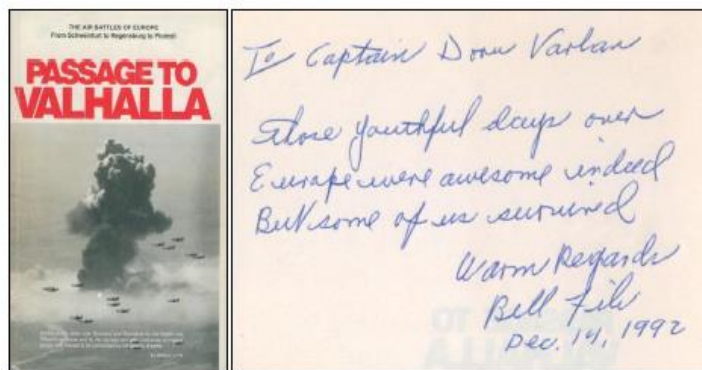 THE AIR BATTLES OF EUROPE
From Schweinfurt to Regensburg to Ploesti
PASSAGE TO
VALHALLA
To Captain Doru Varlan
Those youthful days over
Europe were awesome indeed
But some of us survived
Warm Regards
Bill Fili
Dec. 14, 1992